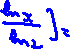 ln x / ln 2 ] =